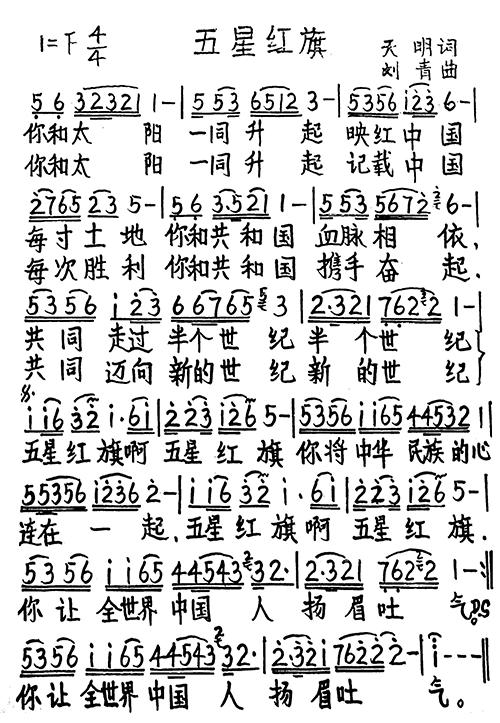 1=下 4/4 五星红旗 天明词
刘青曲
5 6 32321 1 - | 5 53 6512 3 - | 5356 i23 6 - |
你和太 阳 一同升 起 映红中国
你和太 阳 一同升 起 记载中国
2765 23 5 - | 56 3·521 1 - | 5 53 5672 6 - |
每寸土地 你和共和国 血脉相 依,
每次胜利 你和共和国 携手奋 起.
5356 i 23 66765 3 | 2·321 7622 1 - |
共同 走过 半个世 纪 半 个世 纪
共同 迈向 新的世 纪 新 的世 纪
ii6 32 i·6i | 223 i26 5 - | 5356 ii65 445321 |
五星红旗啊 五星 红 旗 你将中华 民族的心
55356 i236 2 - | ii6 32 i·6i | 223 i26 5 - |
连在 一 起,五星红 旗啊 五星 红 旗.
5356 ii65 44543 32· | 2·321 7622 1 - :||
你让 全世界 中国 人 扬眉吐 气 D.S
5356 ii65 44543 32· | 2·32i 76222 - | i - - - ||
你让 全世界 中国 人 扬 眉吐 气。